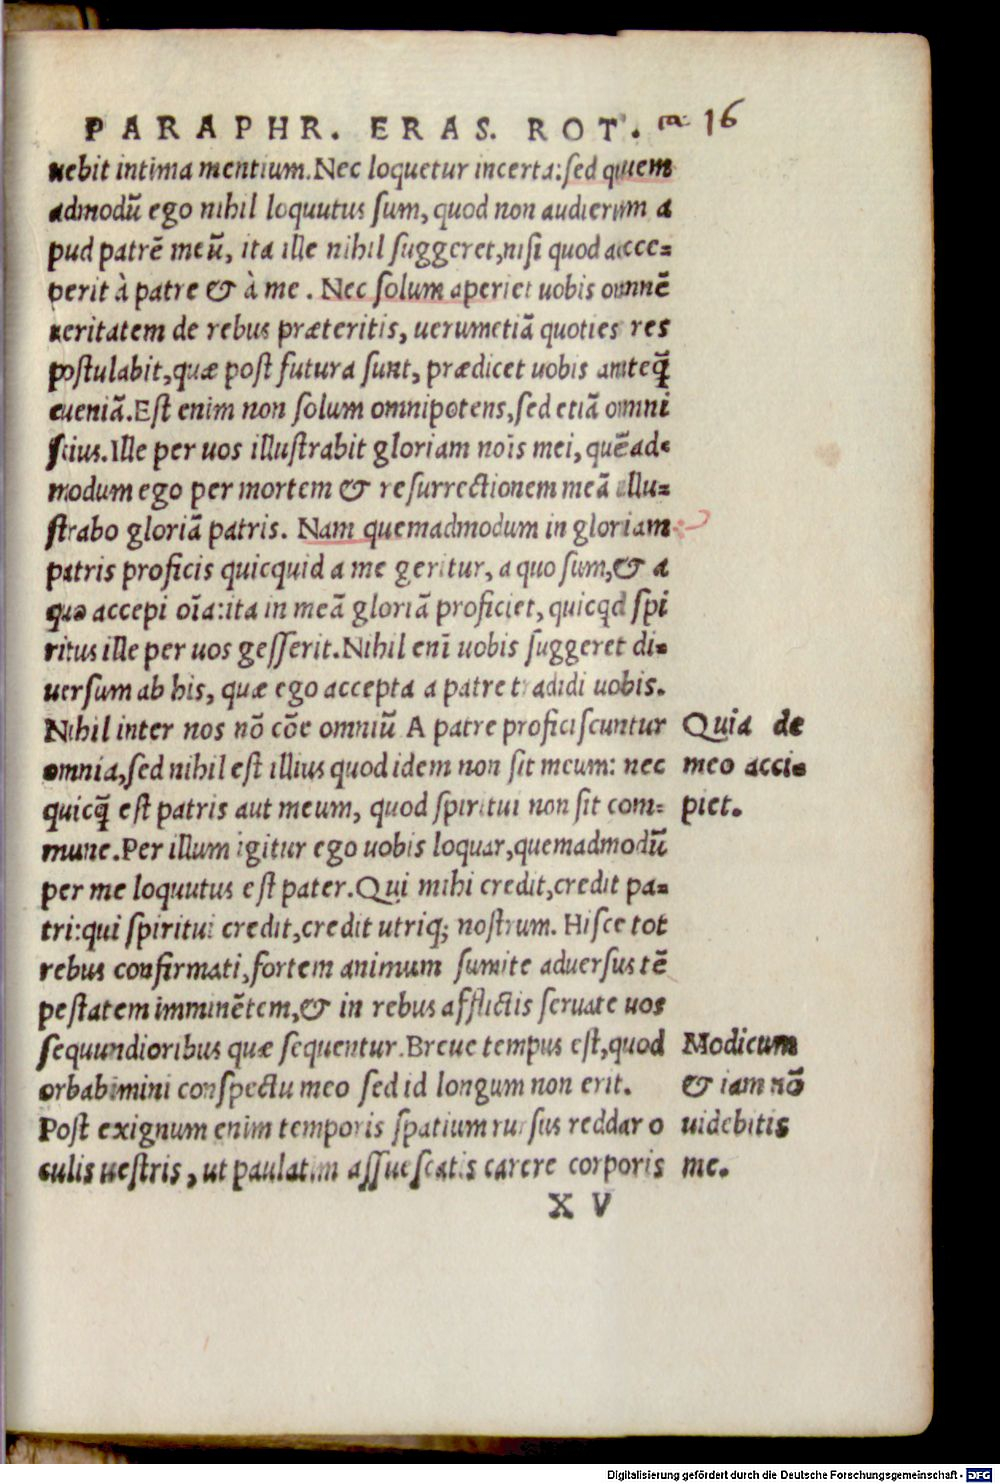 PARAPHR. ERAS. ROT. ca. 16
uebit intima mentium. Nec loquetur incerta: sed quem
admodū ego nihil loquutus sum, quod non audierim a
pud patrē meū, ita ille nihil suggeret, nisi quod acce-
perit à patre & à me. Nec solum aperiet uobis omnē
ueritatem de rebus præteritis, uerumetiā quoties res
postulabit, quæ post futura sunt, prædicet uobis anteq̄
eueniā. Est enim non solum omnipotens, sed etiā omni
scius. Ille per uos illustrabit gloriam noīs mei, quēad-
modum ego per mortem & resurrectionem meā illu-
strabo gloriā patris. Nam quemadmodum in gloriam
patris proficis quicquid a me geritur, a quo sum, & a
quo accepi oīa: ita in meā gloriā proficiet, quicqd spi
ritus ille per uos gesserit. Nihil enī uobis suggeret di-
uersum ab his, quæ ego accepta a patre tradidi uobis.
Nihil inter nos nō cōe omniū A patre proficiscuntur
omnia, sed nihil est illius quod idem non sit meum: nec
quicq̄ est patris aut meum, quod spiritui non sit com-
mune. Per illum igitur ego uobis loquar, quemadmodū
per me loquutus est pater. Qui mihi credit, credit pa-
tri: qui spiritui credit, credit utriq; nostrum. Hisce tot
rebus confirmati, fortem animum sumite aduersus tē
pestatem imminētem, & in rebus afflictis seruate uos
sequundioribus quæ sequentur. Breue tempus est, quod
orbabimini conspectu meo sed id longum non erit.
Post exignum enim temporis spatium rursus reddar o
culis uestris, ut paulatim assuescatis carere corporis
Quia de
meo acci-
piet.
Modicum
& iam nō
uidebitis
me.
X V
Digitalisierung gefördert durch die Deutsche Forschungsgemeinschaft - DFG